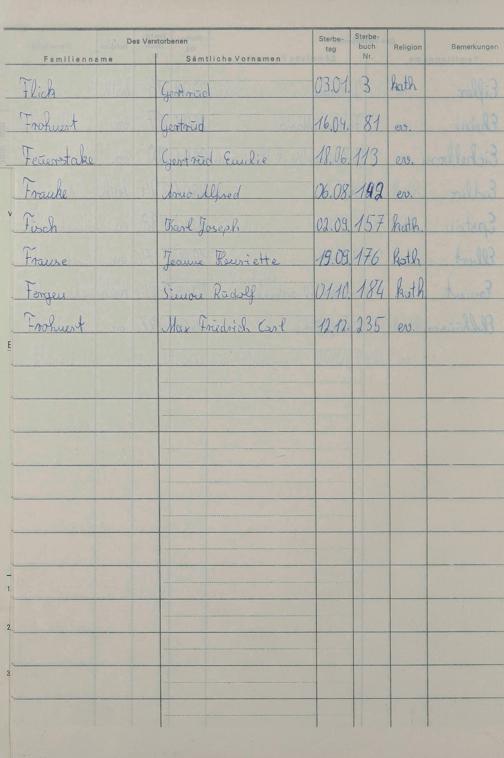 Des Verstorbenen
Familienname Sämtliche Vornamen Sterbe-tag Sterbe-buch Nr. Religion Bemerkungen
Flick Gertrud 03.01. 3 kath
Frohnert Gertrud 16.04. 81 ev.
Feuerstake Gertrud Emilie 18.06. 113 ev.
Franke Arno Alfred 06.08. 142 ev.
Fisch Karl Joseph 02.09. 157 kath.
Frause Jeanne Henriette 19.09. 176 kath
Fergen Simon Rudolf 01.10. 184 kath
Frohnert Max Friedrich Carl 12.12. 235 ev.